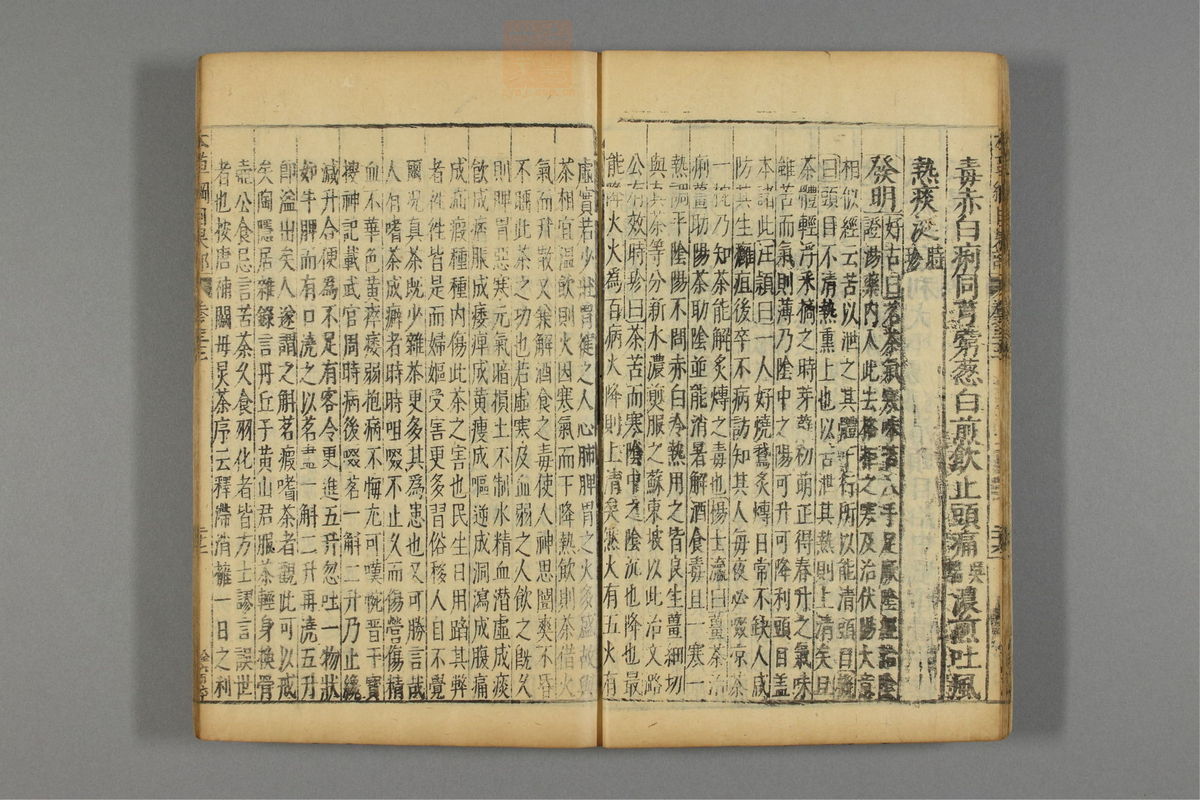 毒赤白痢同芎藭蔥白煎飲止頭痛吳瑞濃煎吐風
熱痰涎時珍
發明好古曰茗茶氣寒味苦入手足厥陰經治陰
證湯藥內入此去格拒之寒及治伏陽大意
相似經云苦以泄之其體下行所以能清頭目機
曰頭目不清熱熏上也以苦泄其熱則上清矣且
茶體輕浮采摘之時芽初萌正得春升之氣味
雖苦而氣則薄乃陰中之陽可升可降利頭目蓋
本諸此汪穎曰一人好燒鵝炙煿日常不缺人咸
防其生癰疽後卒不病訪知其人每夜必啜涼茶
一椀乃知茶能解炙煿之毒也楊士瀛曰薑茶治
痢薑助陽茶助陰並能消暑解酒食毒且一寒一
熱調平陰陽不問赤白冷熱用之皆良生薑細切
與真茶等分新水濃煎服之蘇東坡以此治文潞
公有效時珍曰茶苦而寒陰中之陰沉也降也最
能降火火為百病火降則上清矣然火有五火有
虛實若少壯胃健之人心肺脾胃之火多盛故與
茶相宜溫飲則火因寒氣而下降熱飲則茶借火
氣而升散又兼解酒食之毒使人神思闓爽不昏
不睡此茶之功也若虛寒及血弱之人飲之既久
則脾胃惡寒元氣暗損土不制水精血潛虛成痰
飲成痞脹成痿痺成黃瘦成嘔逆成洞瀉成腹痛
成疝瘕種種內傷此茶之害也民生日用蹈其弊
者往往皆是而婦嫗受害更多習俗移人自不覺
爾況真茶既少雜茶更多其為患也又可勝言哉
人有嗜茶成癖者時時咀啜不止久而傷營傷精
血不華色黃瘁痿弱抱病不悔尤可嘆惋晉干寶
搜神記載武官周時病後啜茗一斛二升乃止纔
減升合便為不足有客令更進五升忽吐一物狀
如牛脾而有口澆之以茗盡一斛二升再澆五升
即溢出矣人遂謂之斛茗瘕嗜茶者觀此可以戒
矣陶隱居雜錄言丹丘子黃山君服茶輕身換骨
壺公食忌言苦茶久食羽化者皆方士謬言誤世
者也按唐補闕母炅茶序云釋滯消壅一日之利
本草綱目果部